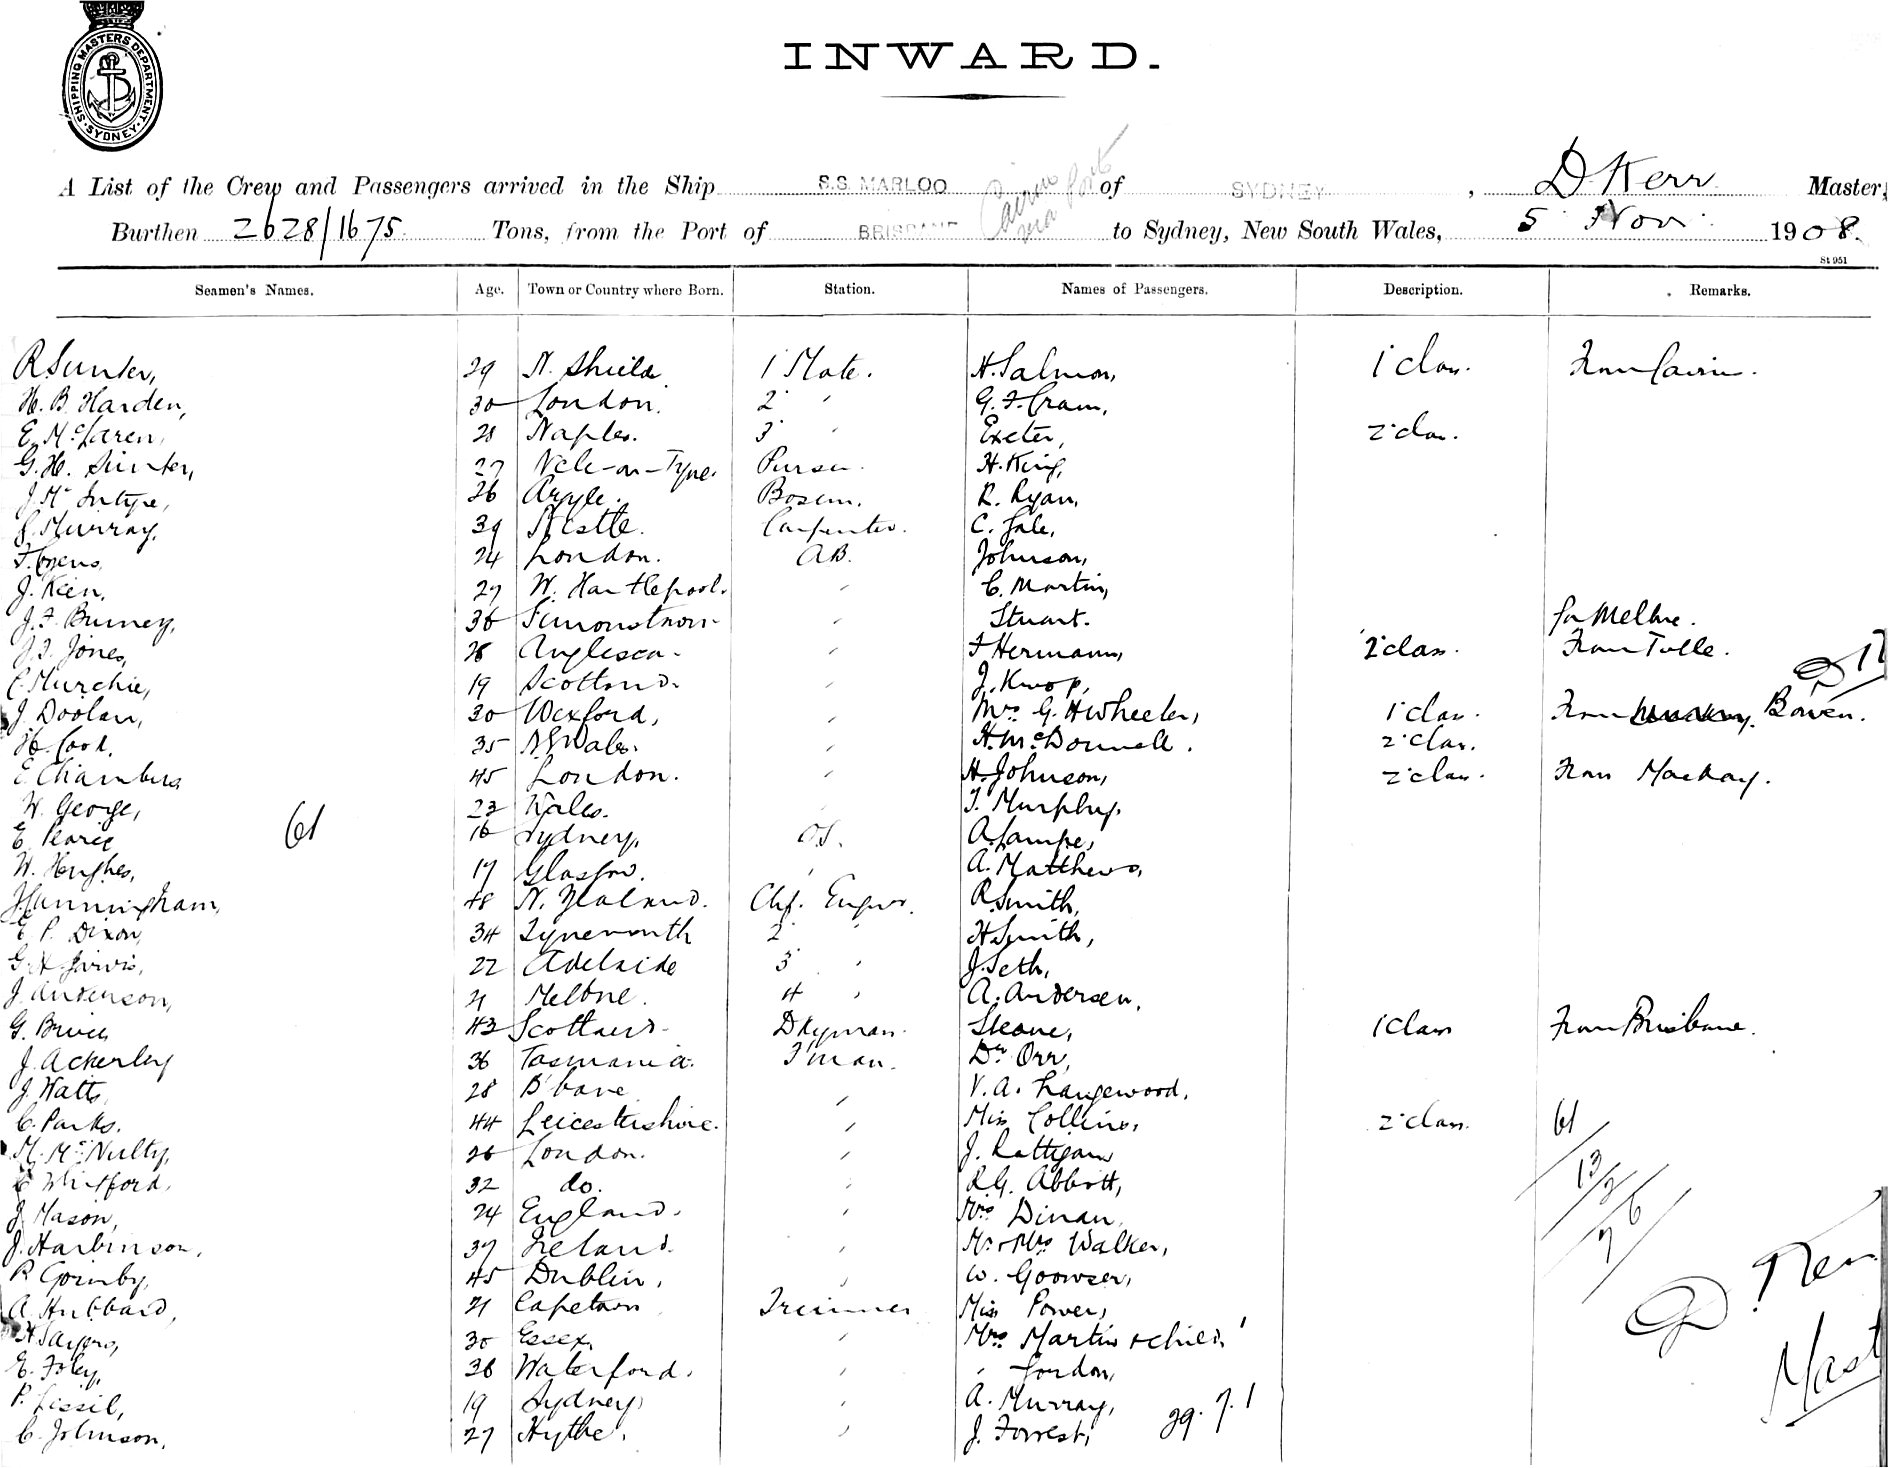 SHIPPING MASTERS DEPARTMENT
SYDNEY
INWARD.
A List of the Crew and Passengers arrived in the Ship S.S. MARLOO of SYDNEY, D. Kerr Master,
Cairns via Ports
Burthen 2628/1675 Tons, from the Port of BRISBANE to Sydney, New South Wales, 5 Nov 1908.
St 951
Seamen's Names. Age. Town or Country where Born. Station. Names of Passengers. Description. Remarks.
R Sunter, 29 N. Shields 1 Mate. H. Salmon, 1 clas. From Cairns.
H. B. Harden, 30 London. 2 " G. F. Cram,
E. McLaren, 28 Naples. 3 " Exeter, 2 clas.
G. H. Sunter, 27 Ncle-on-Tyne. Purser. H. King,
J. McIntyre, 26 Argyle. Bosun. R. Ryan,
Murray, 39 Ncstle. Carpenter. C. Gale,
24 London. AB. Johnson,
J. Keen, 27 W. Hartlepool. " C. Martin,
J. F. Burney, 36 " Stuart. for Melbne.
Jones, 28 Anglesea. " F Hermann, 2 clas. From
Murchie, 19 Scotland. " J. Kwop,
J. Doolan, 30 Wexford, " Mrs G. H Wheeler, 1 clas. From Bowen.
H. Cook, 35 N.S Wales. " H. McDonnell. 2 clas.
E Chambers 45 London. " H. Johnson, 2 clas. From Mackay.
W. George, 23 Wales. " T. Murphy,
E. Pearce 16 Sydney, OS. A. Lampe,
61
W. Hughes, 17 Glasgow. " A. Matthews,
48 N. Zealand. Chf. Engnr. R Smith,
E P. Dixon, 34 Tynemouth 2 " H Smith,
G H Jarvis, 22 Adelaide 3 " J. Seth,
J. Anderson, 21 Melbne. 4 " A. Andersen,
G. Bruce 43 Scotland. Dkyman. Sloane, 1 class From Brisbane.
J. Ackerley 36 Tasmania. F'man. Dr Orr,
J. Watts, 28 B'bane " V. A. Langewood,
C. Parks. 44 Leicestershire. " Miss Collins, 2 clas. 61
M. McNulty, 26 London. " J. Rattigan
Whitford, 32 do. " R G. Abbott, 13/2
J. Mason, 24 England. " Mrs Dinan,
J. Harbinson, 37 Ireland. " Mr & Mrs Walker,
R Gormby, 45 Dublin, " W. Goowser,
A Hubbard, 21 Capetown Trimmer Miss Power,
H Sayers, 30 Essex, " Mrs Martin & child,
E. Foley, 38 Waterford. " " Gordon,
P. 19 Sydney, " A. Murray,
C. Johnson, 27 Hythe. " J. Forrest, 29. 7. 1
Mast